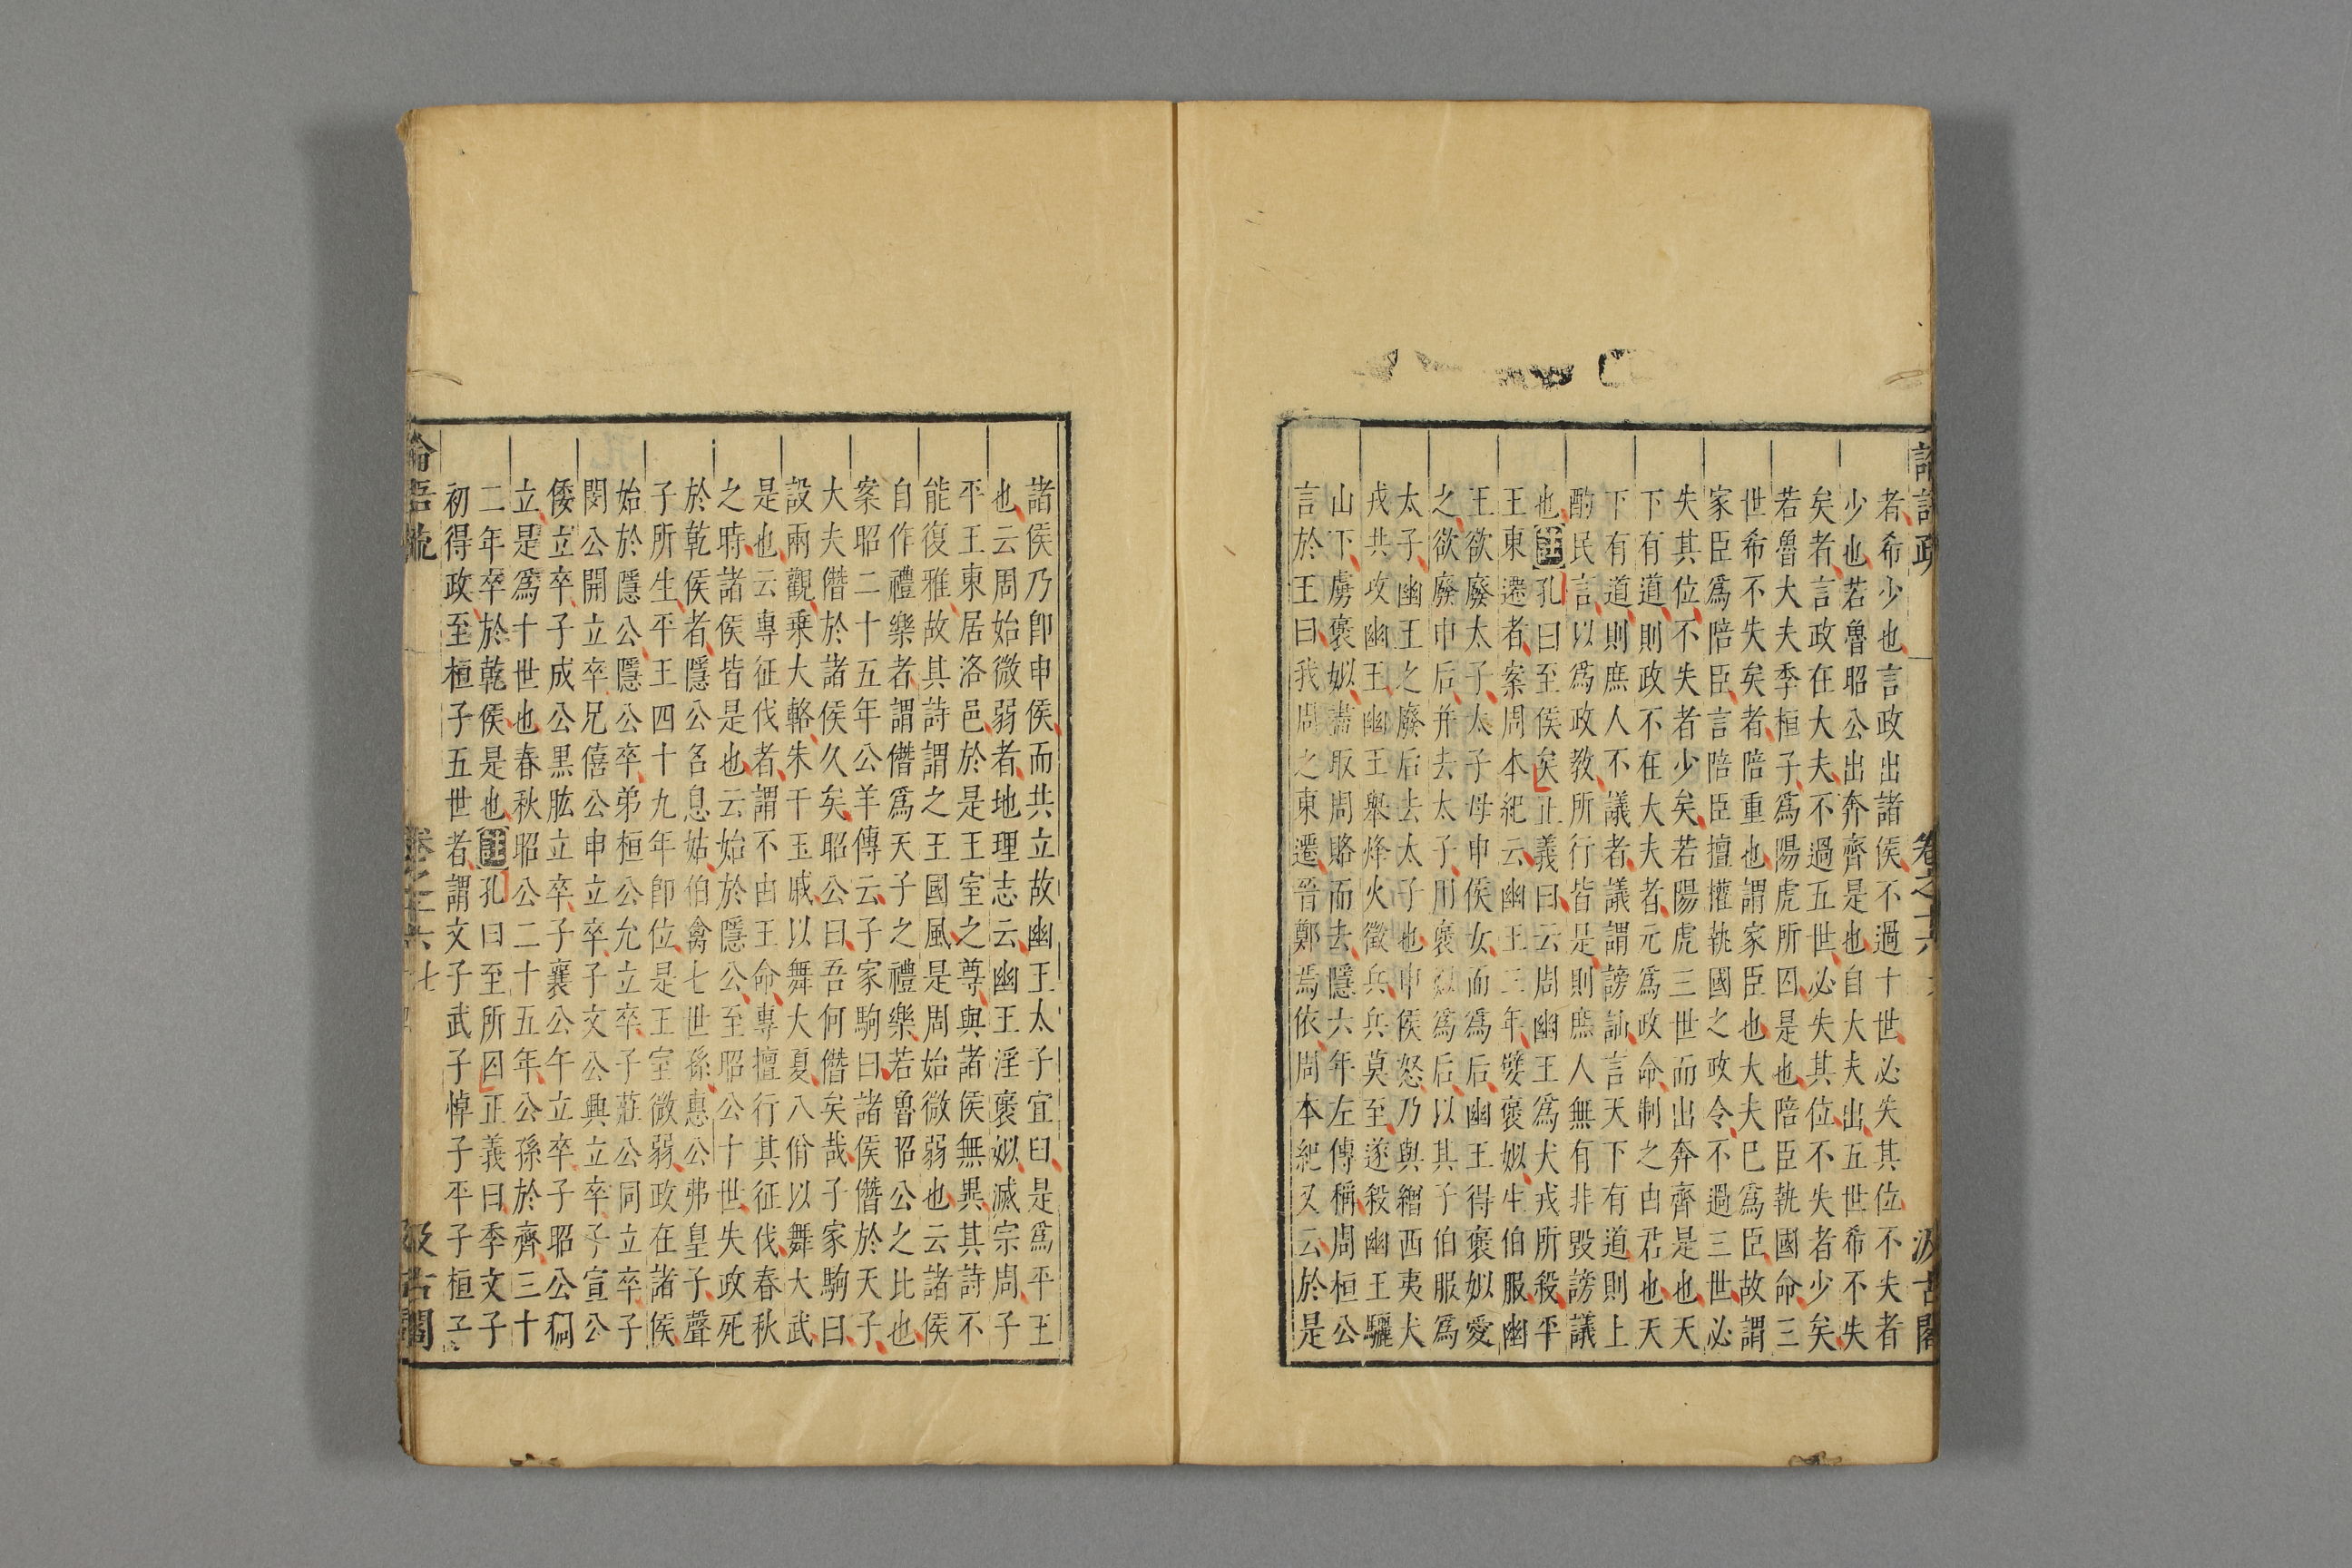 者希少也言政出諸侯不過十世必失其位不失者
少也若魯昭公出奔齊是也自大夫出五世希不失
矣者言政在大夫不過五世必失其位不失者少矣
若魯大夫季桓子爲陽虎所囚是也陪臣執國命三
世希不失矣者陪重也謂家臣也大夫已爲臣故謂
家臣爲陪臣言陪臣擅權執國之政令不過三世必
失其位不失者少矣若陽虎三世而出奔齊是也天
下有道則政不在大夫者元爲政命制之由君也天
下有道則庶人不議者議謂謗訕言天下有道則上
酌民言以爲政教所行皆是則庶人無有非毀謗議
也註孔曰至侯矣正義曰云周幽王爲犬戎所殺平
王東遷者案周本紀云幽王三年嬖褒姒生伯服幽
王欲廢太子太子母申侯女而爲后幽王得褒姒愛
之欲廢申后并去太子用褒姒爲后以其子伯服爲
太子幽王之廢后去太子也申侯怒乃與繒西夷犬
戎共攻幽王幽王舉烽火徵兵兵莫至遂殺幽王驪
山下虜褒姒盡取周賂而去隱六年左傳稱周桓公
言於王曰我周之東遷晉鄭焉依周本紀又云於是
諸侯乃卽申侯而共立故幽王太子宜臼是爲平王
也云周始微弱者地理志云幽王淫褒姒滅宗周子
平王東居洛邑於是王室之尊與諸侯無異其詩不
能復雅故其詩謂之王國風是周始微弱也云諸侯
自作禮樂者謂僭爲天子之禮樂若魯昭公之比也
案昭二十五年公羊傳云子家駒曰諸侯僭於天子
大夫僭於諸侯久矣昭公曰吾何僭矣哉子家駒曰
設兩觀乗大輅朱干玉戚以舞大夏八佾以舞大武
是也云專征伐者謂不由王命專擅行其征伐春秋
之時諸侯皆是也云始於隱公至昭公十世失政死
於乾侯者隱公名息姑伯禽七世孫惠公弗皇子聲
子所生平王四十九年卽位是王室微弱政在諸侯
始於隱公隱公卒弟桓公允立卒子莊公同立卒子
閔公開立卒兄僖公申立卒子文公興立卒子宣公
倭立卒子成公黑肱立卒子襄公午立卒子昭公裯
立是爲十世也春秋昭公二十五年公孫於齊三十
二年卒於乾侯是也註孔曰至所囚正義曰季文子
初得政至桓子五世者謂文子武子悼子平子桓子
卷之十六 七
汲古閣